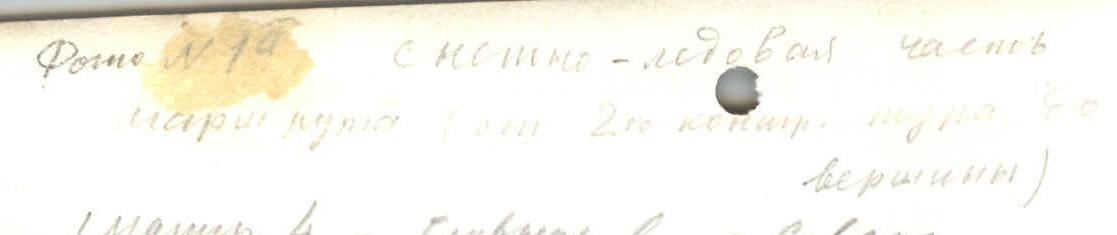 Фото N 1а снежно-ледовая часть
маршрута (от 2го контр. тура до
вершины)